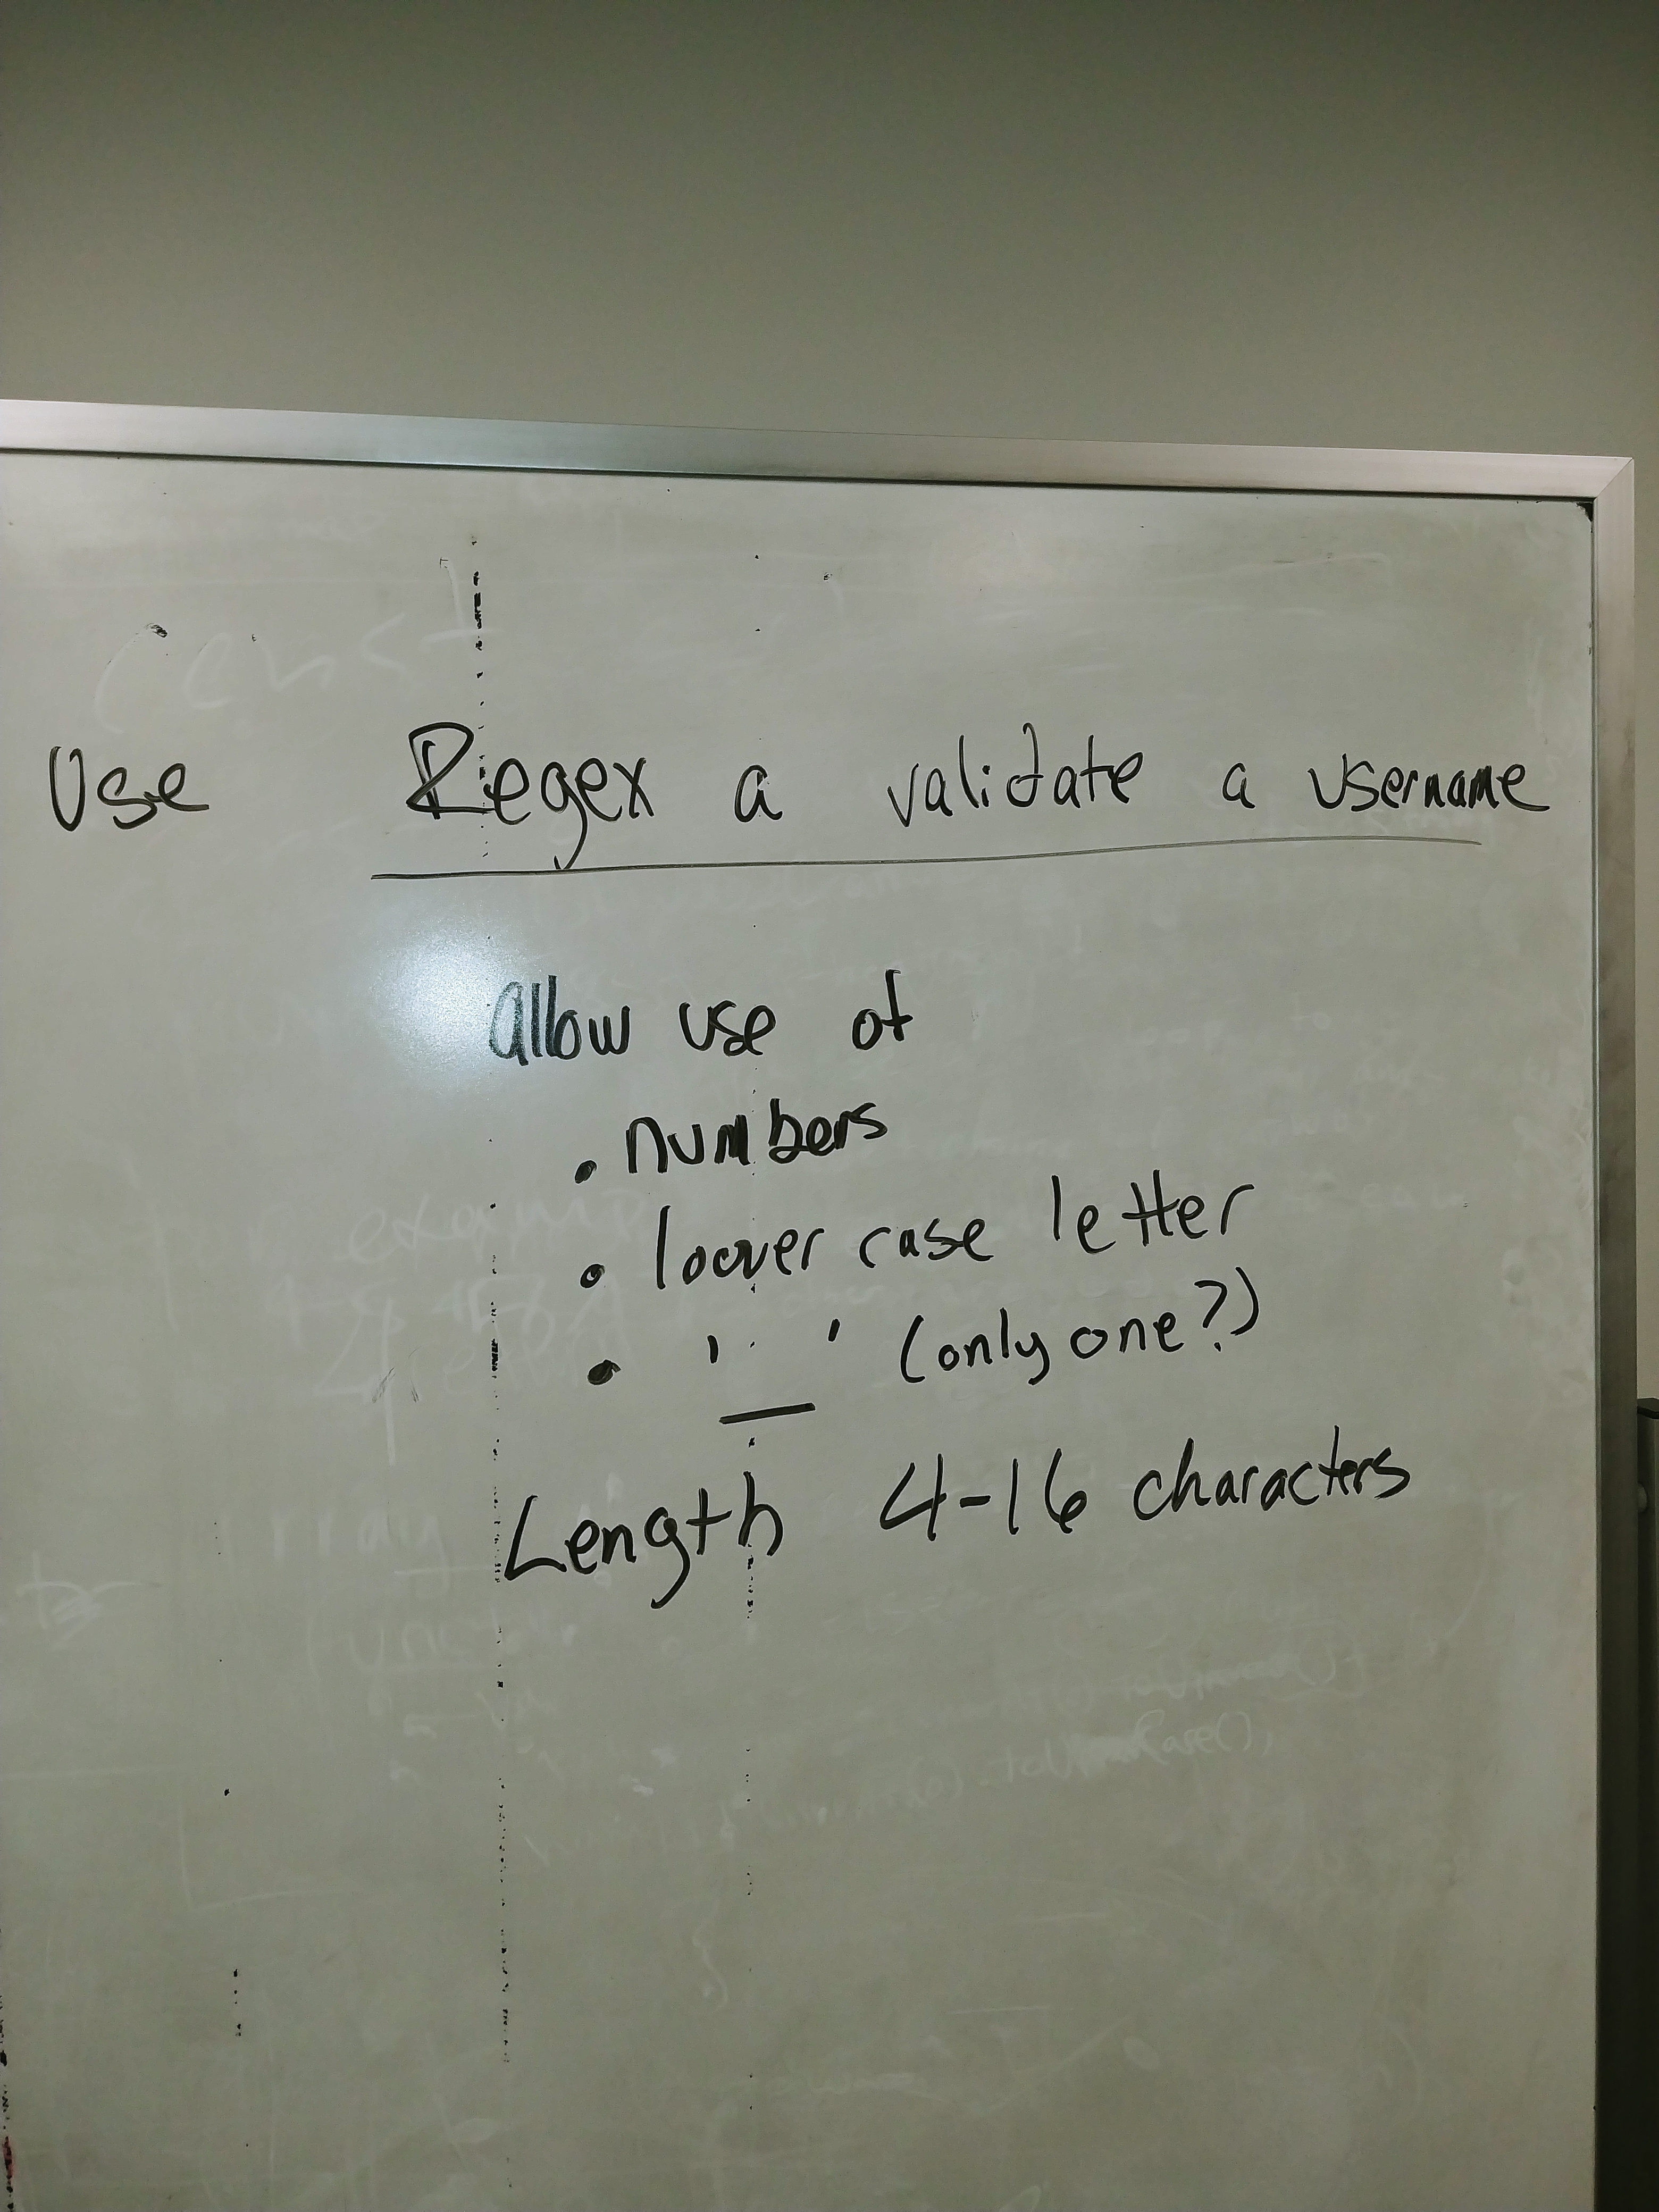 Use Regex a validate a username
allow use of
• numbers
• loower case letter
• '_' (only one?)
Length 4-16 characters